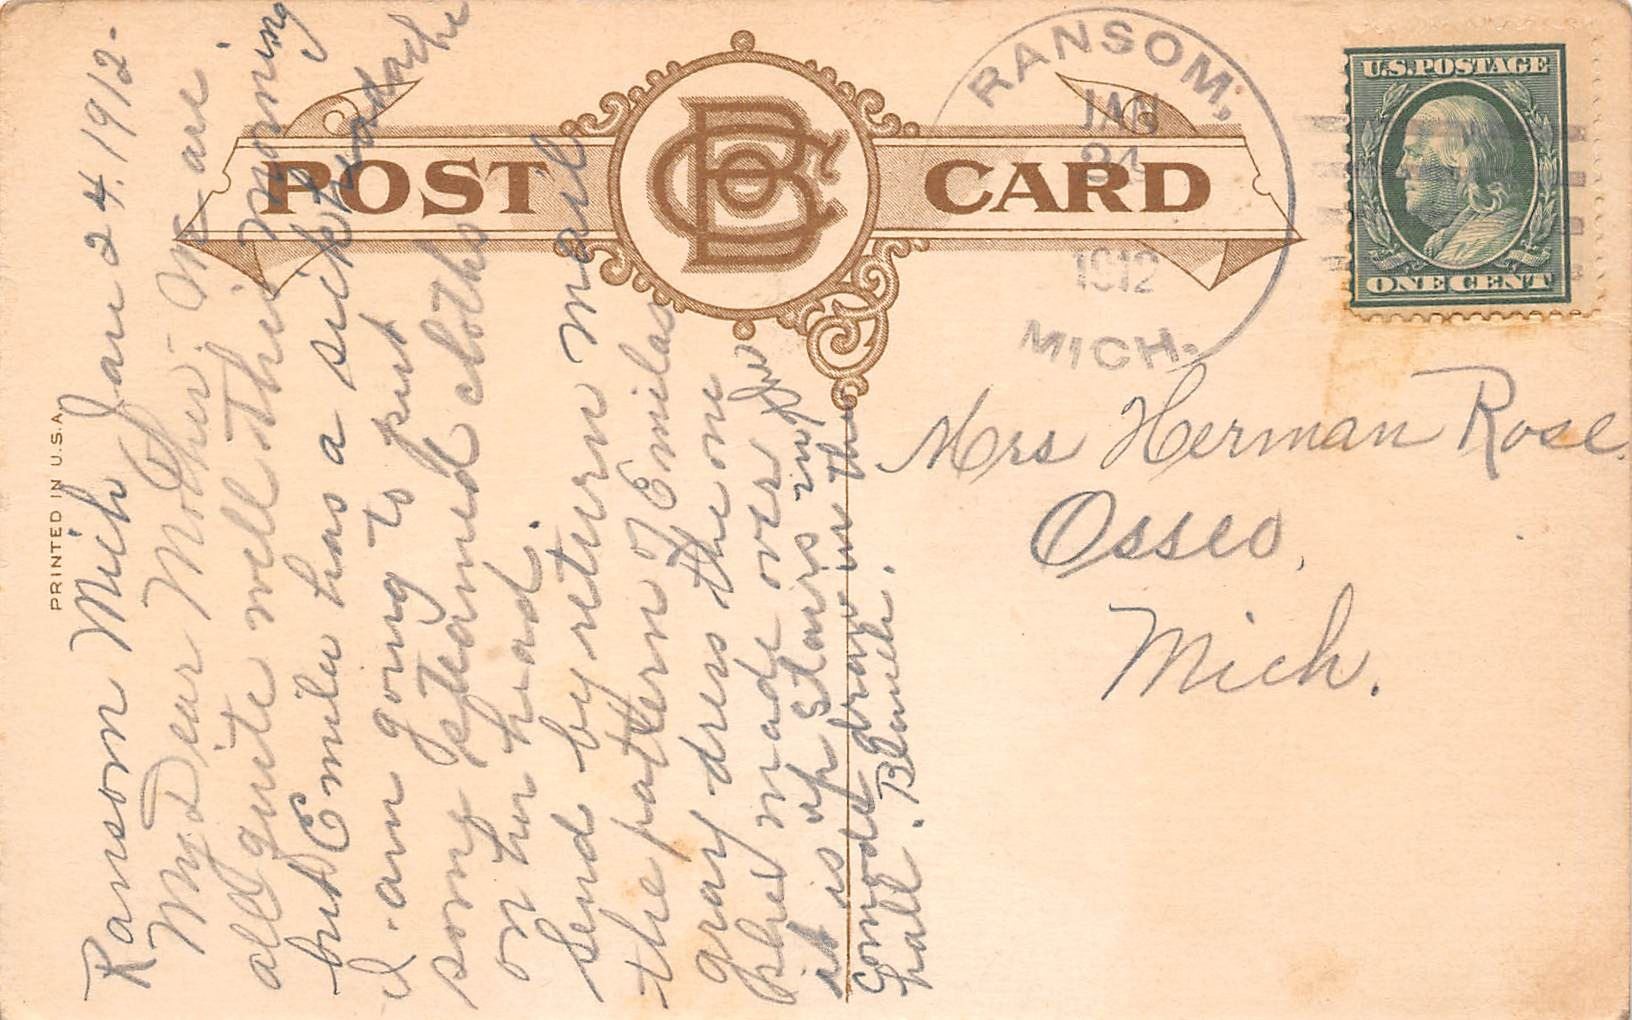 PRINTED IN U.S.A.
POST CARD
RANSOM,
JAN
24
1912
MICH.
U.S.POSTAGE
ONE CENT
Ransom Mich Jan 24. 1912-
My Dear Mother - We are
all quite well this morning
but Emila has a sick headache
I am going to put
some steamed cloths
on her head.
Send by return mail
the pattern of Emilas
gray dress the one
she made over
it is up stairs in
Comode draw in the
hall. Blanch.
Mrs Herman Rose
Osseo,
Mich.